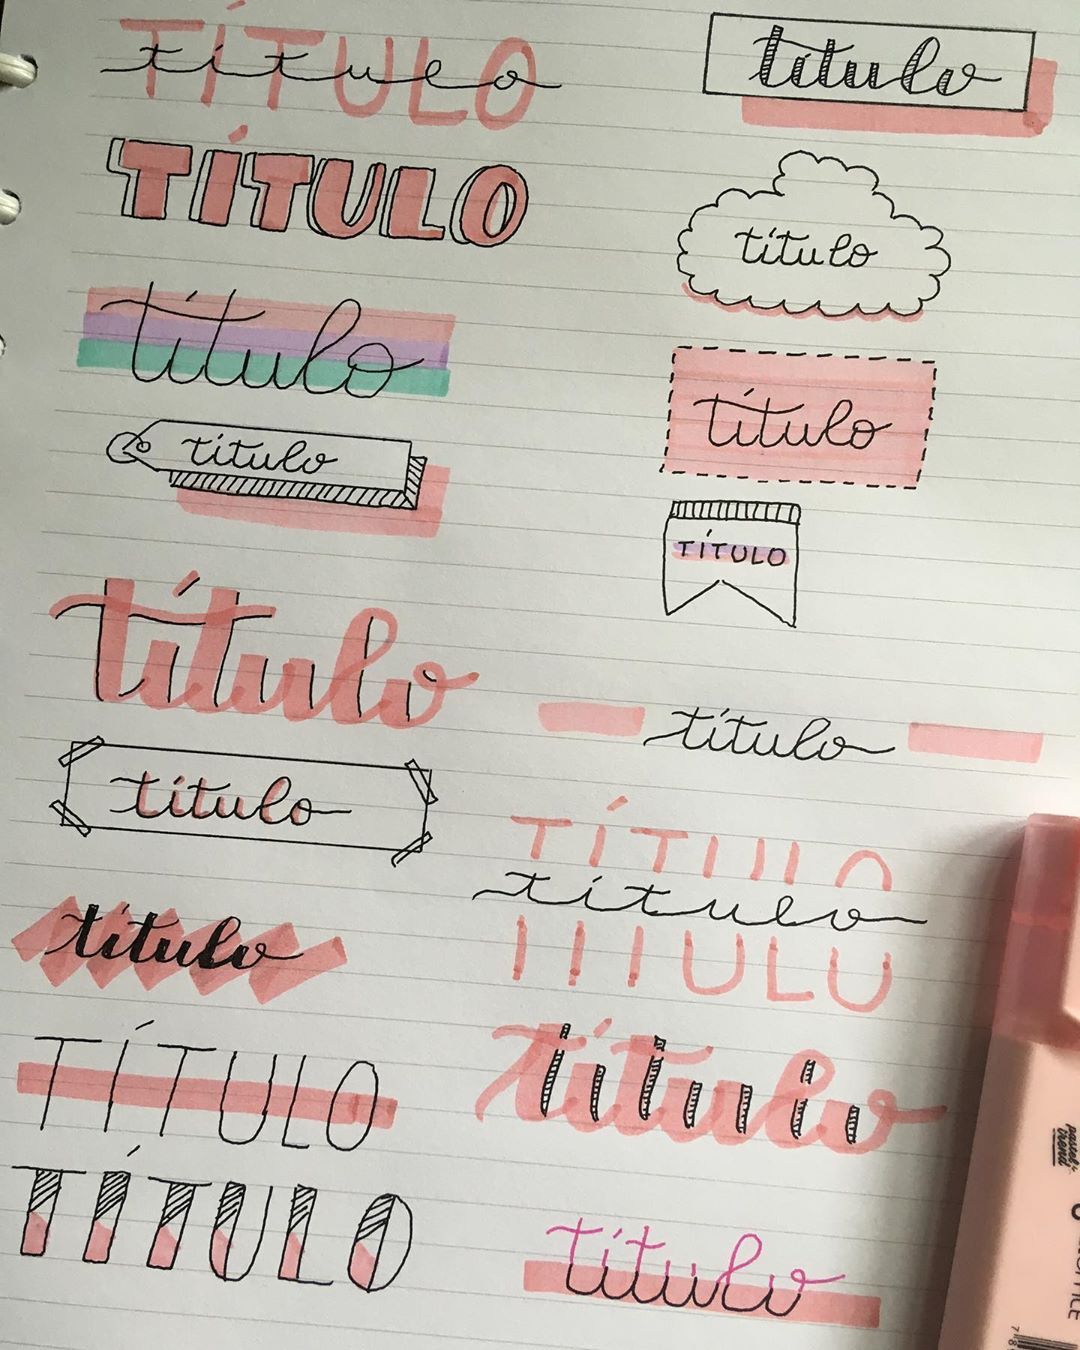 TÍTULO
título
título
TÍTULO
título
título
título
título
TÍTULO
título
título
título
TÍTULO
título
título
TÍTULO
TÍTULO
título
TÍTULO
título
pastel trend